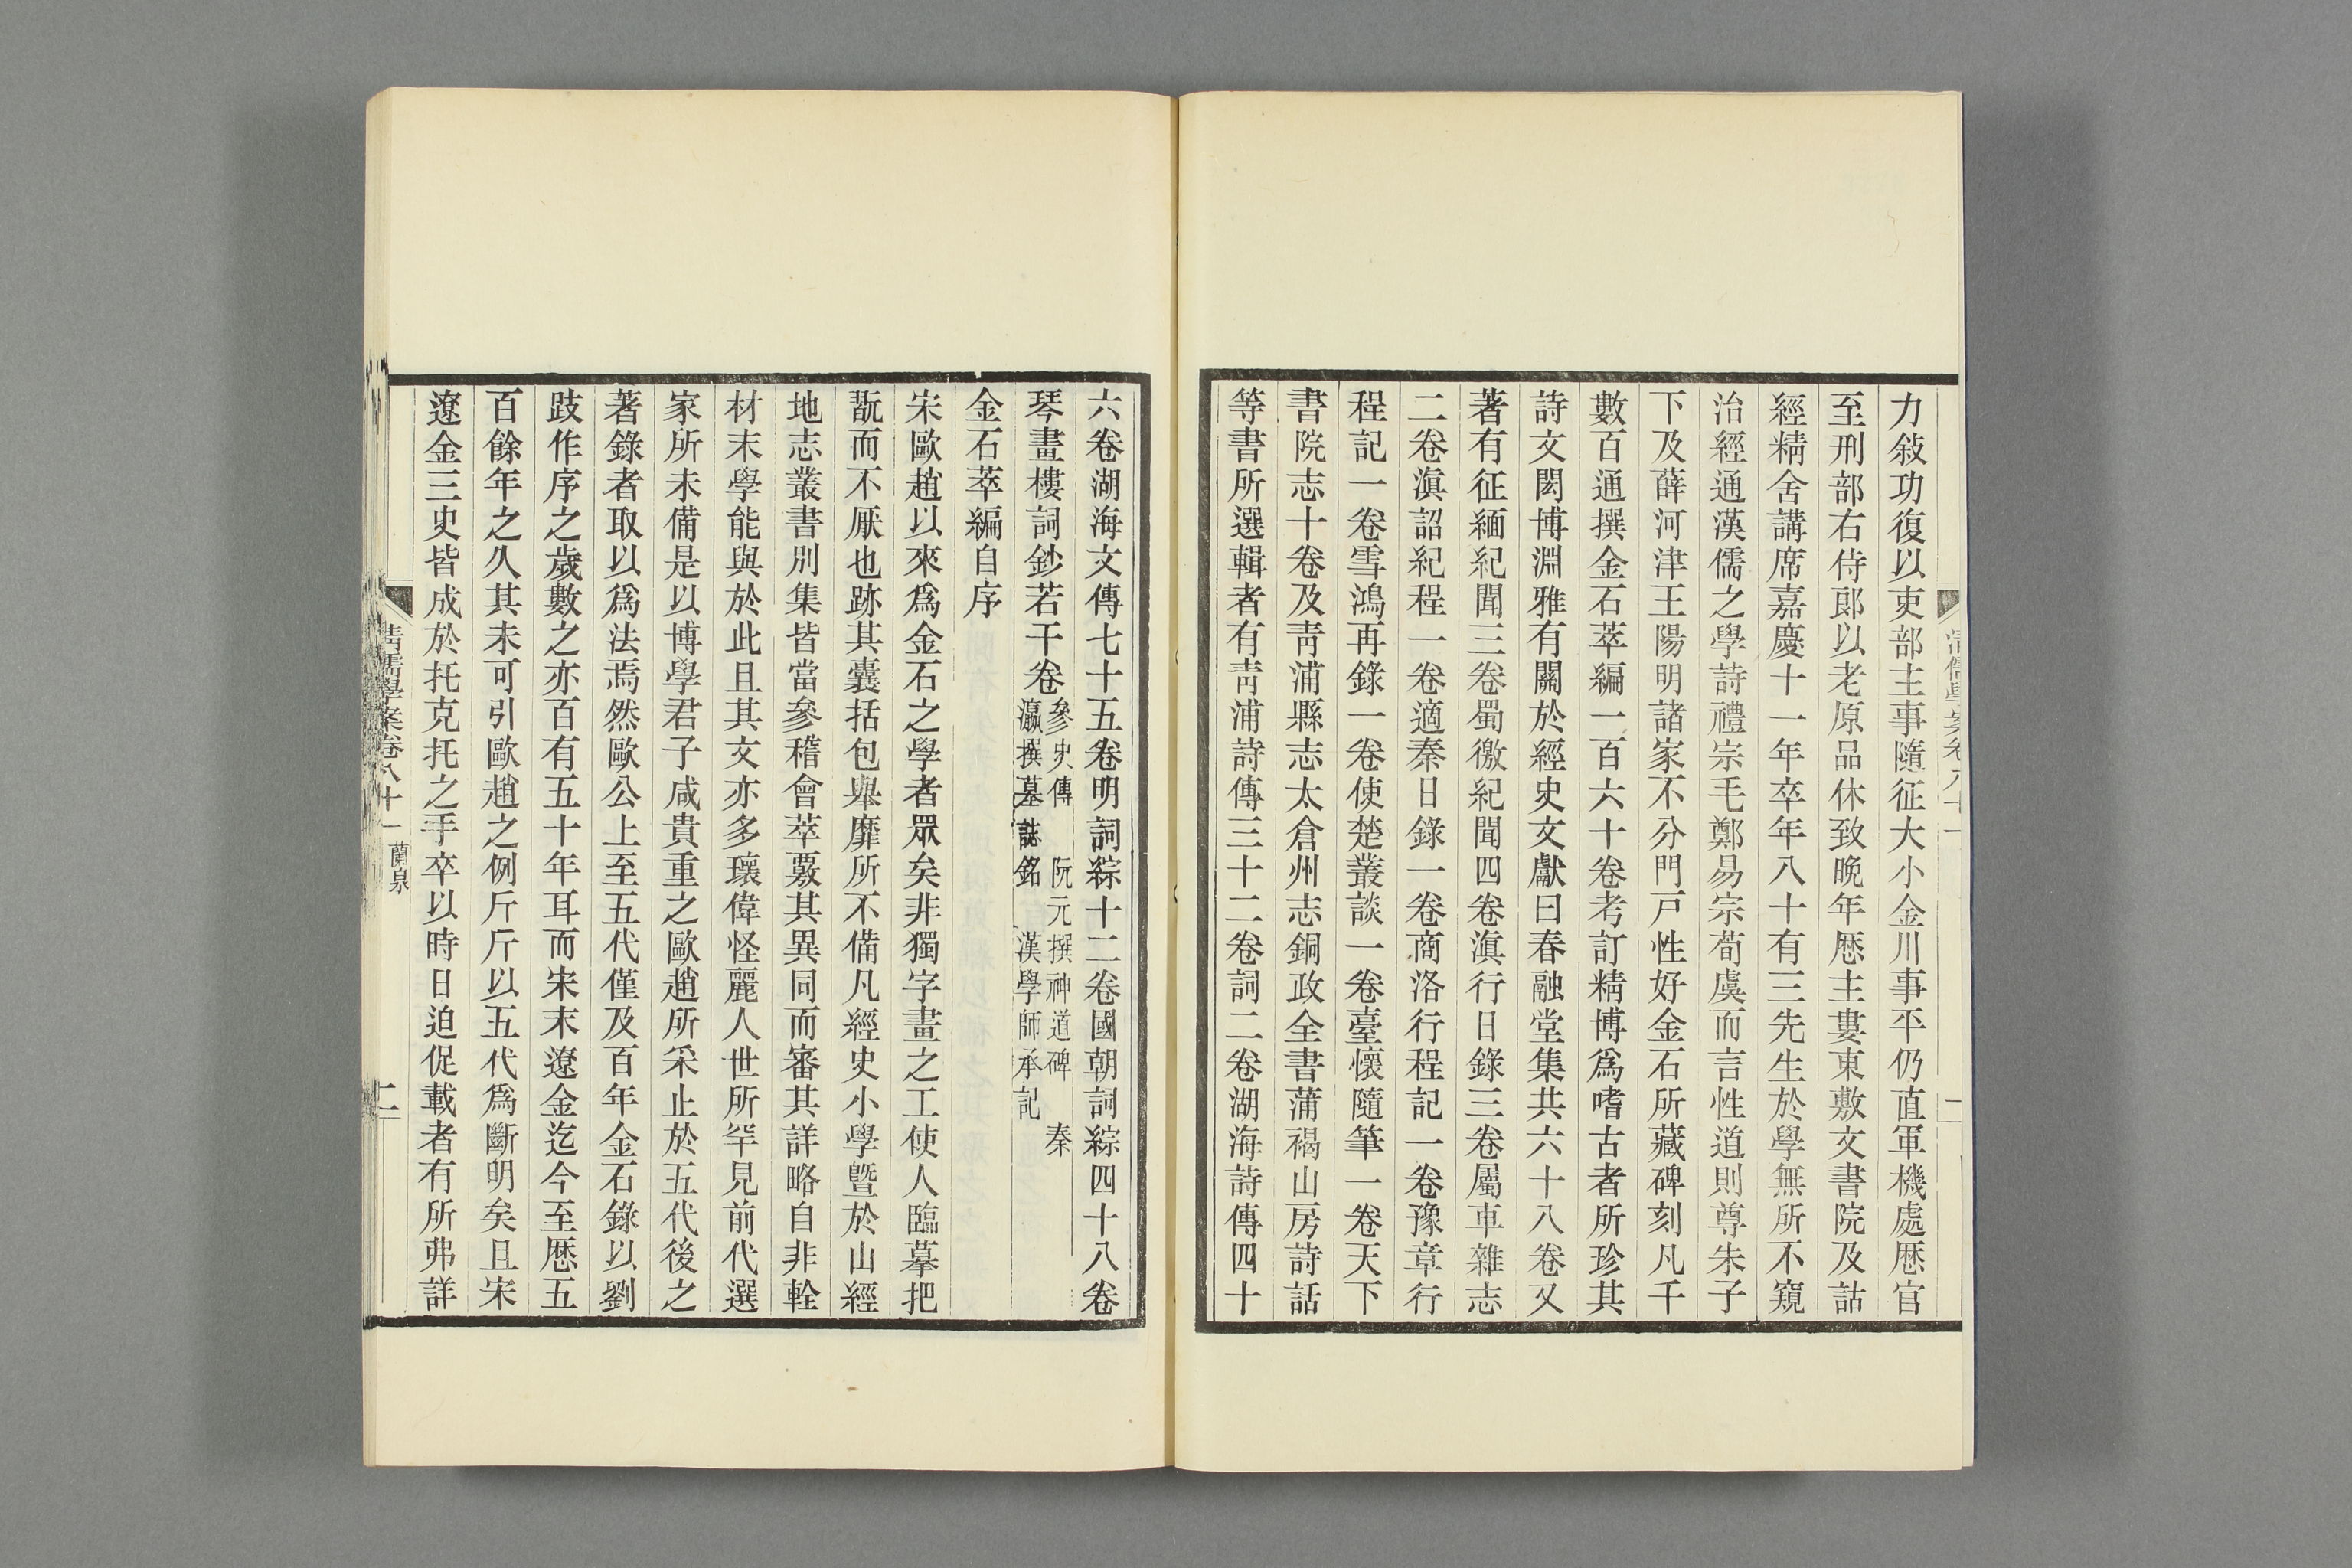 力敍功復以吏部主事隨征大小金川事平仍直軍機處厯官
至刑部右侍郎以老原品休致晩年厯主婁東敷文書院及詁
經精舍講席嘉慶十一年卒年八十有三先生於學無所不窺
治經通漢儒之學詩禮宗毛鄭易宗荀虞而言性道則尊朱子
下及薛河津王陽明諸家不分門戸性好金石所藏碑刻凡千
數百通撰金石萃編一百六十卷考訂精博爲嗜古者所珍其
詩文閎博淵雅有關於經史文獻曰春融堂集共六十八卷又
著有征緬紀聞三卷蜀徼紀聞四卷滇行日錄三卷屬車雜志
二卷滇詔紀程一卷適秦日錄一卷商洛行程記一卷豫章行
程記一卷雪鴻再錄一卷使楚叢談一卷臺懷隨筆一卷天下
書院志十卷及靑浦縣志太倉州志銅政全書蒲褐山房詩話
等書所選輯者有靑浦詩傳三十二卷詞二卷湖海詩傳四十
清儒學案卷八十一
二
六卷湖海文傳七十五卷明詞綜十二卷國朝詞綜四十八卷
琴畫樓詞鈔若干卷
參史傳 阮元撰神道碑 秦
瀛撰墓誌銘 漢學師承記
金石萃編自序
宋歐趙以來爲金石之學者眾矣非獨字畫之工使人臨摹把
翫而不厭也跡其囊括包舉靡所不備凡經史小學曁於山經
地志叢書別集皆當參稽會萃覈其異同而審其詳略自非輇
材末學能與於此且其文亦多瓌偉怪麗人世所罕見前代選
家所未備是以博學君子咸貴重之歐趙所采止於五代後之
著錄者取以爲法焉然歐公上至五代僅及百年金石錄以劉
跂作序之歲數之亦百有五十年耳而宋末遼金迄今至厯五
百餘年之久其未可引歐趙之例斤斤以五代爲斷明矣且宋
遼金三史皆成於托克托之手卒以時日迫促載者有所弗詳
清儒學案卷八十一 蘭泉
二